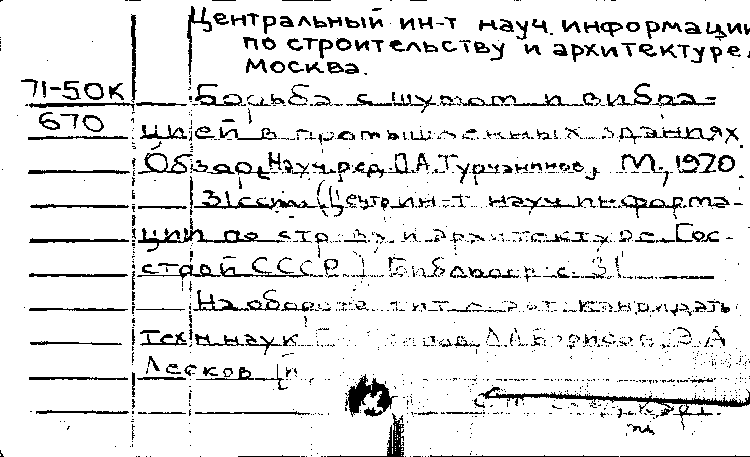 Центральный ин-т науч. информации
по строительству и архитектуре,
Москва.
71-50К Борьба с шумом и вибра-
670 цией в промышленных зданиях.
Обзор, Науч. ред. Л.А. Турчанинов, М., 1970
31 с. (Центр ин-т науч информа-
ции по стр-ву и архитектуре. Гос-
строй СССР.) Библиогр: с. 31
На обороте тит л. авт. кандидаты
техн наук Л.А. Борисов, Э.А
Лесков